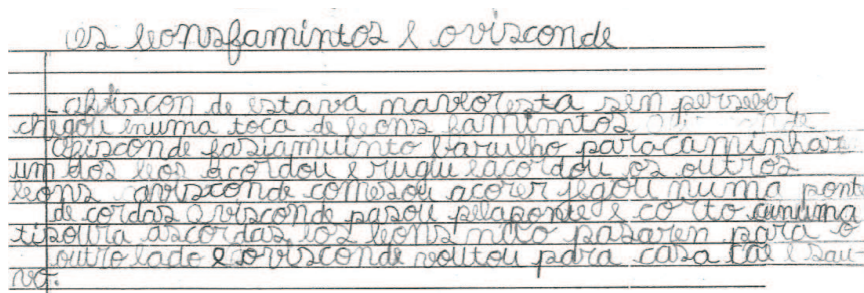 os leonsfamintos e ovisconde
-ofiscon de estava navloresta sen perseber
chegou enuma toca de leons faminntos
ofisconde fasiamuinto barulho paracaminhar
um dos leos acordou e rugiu eacordou os outros
leons ovisconde comesou acorer jegou numa pont
de cordas ovisconde pasou pelaponte e corto cunuma
tisoura ascordas los leons nuto pasaren para o
outro lado e ovisconde voutou para casa cal e sau
vo.